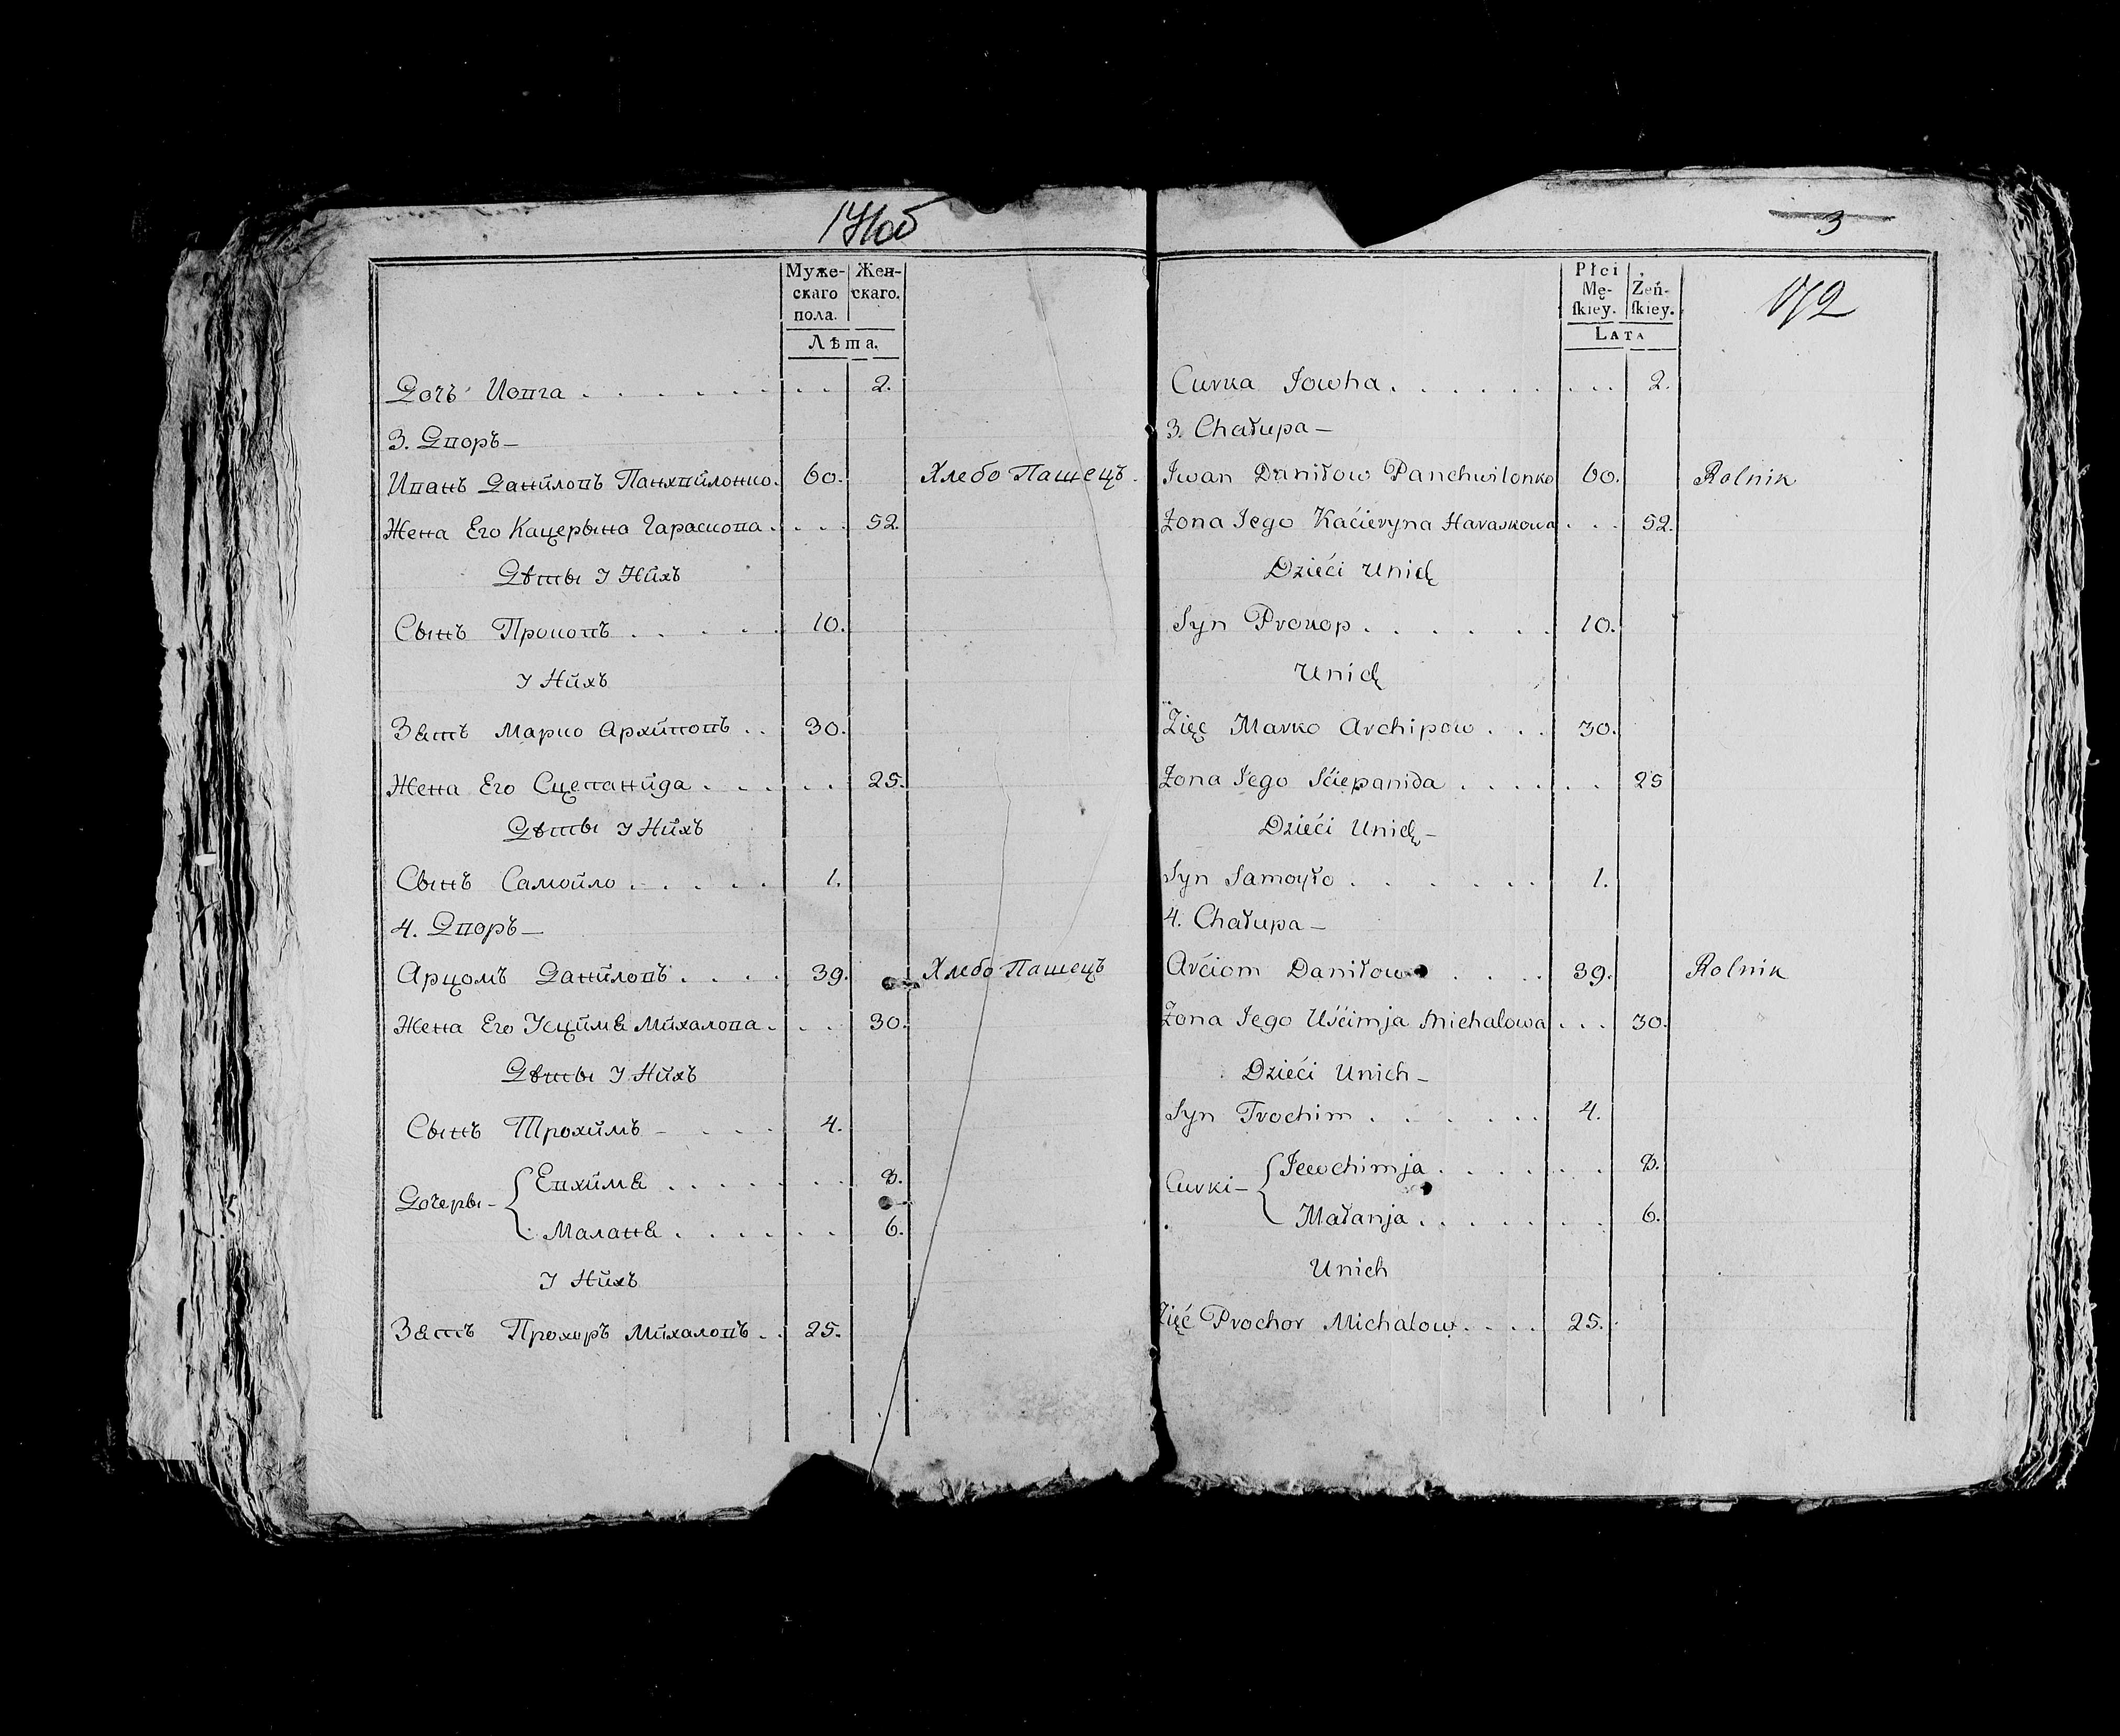 171об
Муже-
скаго
пола.
Жен-
скаго.
Лѣта.
Дочъ Иовга . . . . . . . . . 2.
3. Дворъ—
Иванъ Данйловъ Панхвйлонко. 60. Хлебо Пашецъ.
Жена Его Кацерына Гараскова . . . . 52.
Дѣты У Нйхъ
Сынъ Прокопъ . . . . . 10.
У Нйхъ
Зять Марко Архйповъ . . 30.
Жена Его Сцепанйда . . . . . . 25.
Дѣты У Нйхъ
Сынъ Самойло . . . . . 1.
4. Дворъ—
Арцомъ Данйловъ . . . . 39. Хлебо Пашецъ
Жена Его Усцймя Мйхалова . . . . 30.
Дѣты У Нйхъ
Сынъ Трохймъ — . . . 4.
Дочеры— Евхймя . . . . . . 8.
Маланя . . . . . . 6.
У Нйхъ
Зять Прохоръ Мйхаловъ . . 25.
3
172
Płci
Mę-
ſkiey.
Żeń-
ſkiey.
Lata
Curka Jowha . . . . . . . . . 2.
3. Chałupa —
Iwan Daniłow Panchwilonko 60. Rolnik
Żona Jego Kaćieryna Haraskowa . . . 52.
Dzieći Unich
Syn Prokop . . . . . . . 10.
Unich
Zięc Marko Archipow . . . 30.
Żona Jego Sćiepanida . . . . . . 25
Dzieći Unich —
Syn Samoyło . . . . . . . 1.
4. Chałupa —
Arćiom Daniłow . . . . 39. Rolnik
Żona Jego Uśćimja Michalowa . . . 30.
Dzieći Unich —
Syn Trochim . . . . . . 4.
Curki — Jewchimja . . . . . . . 8.
Małanja . . . . . . . 6.
Unich
Zięć Prochor Michalow . . . . 25.